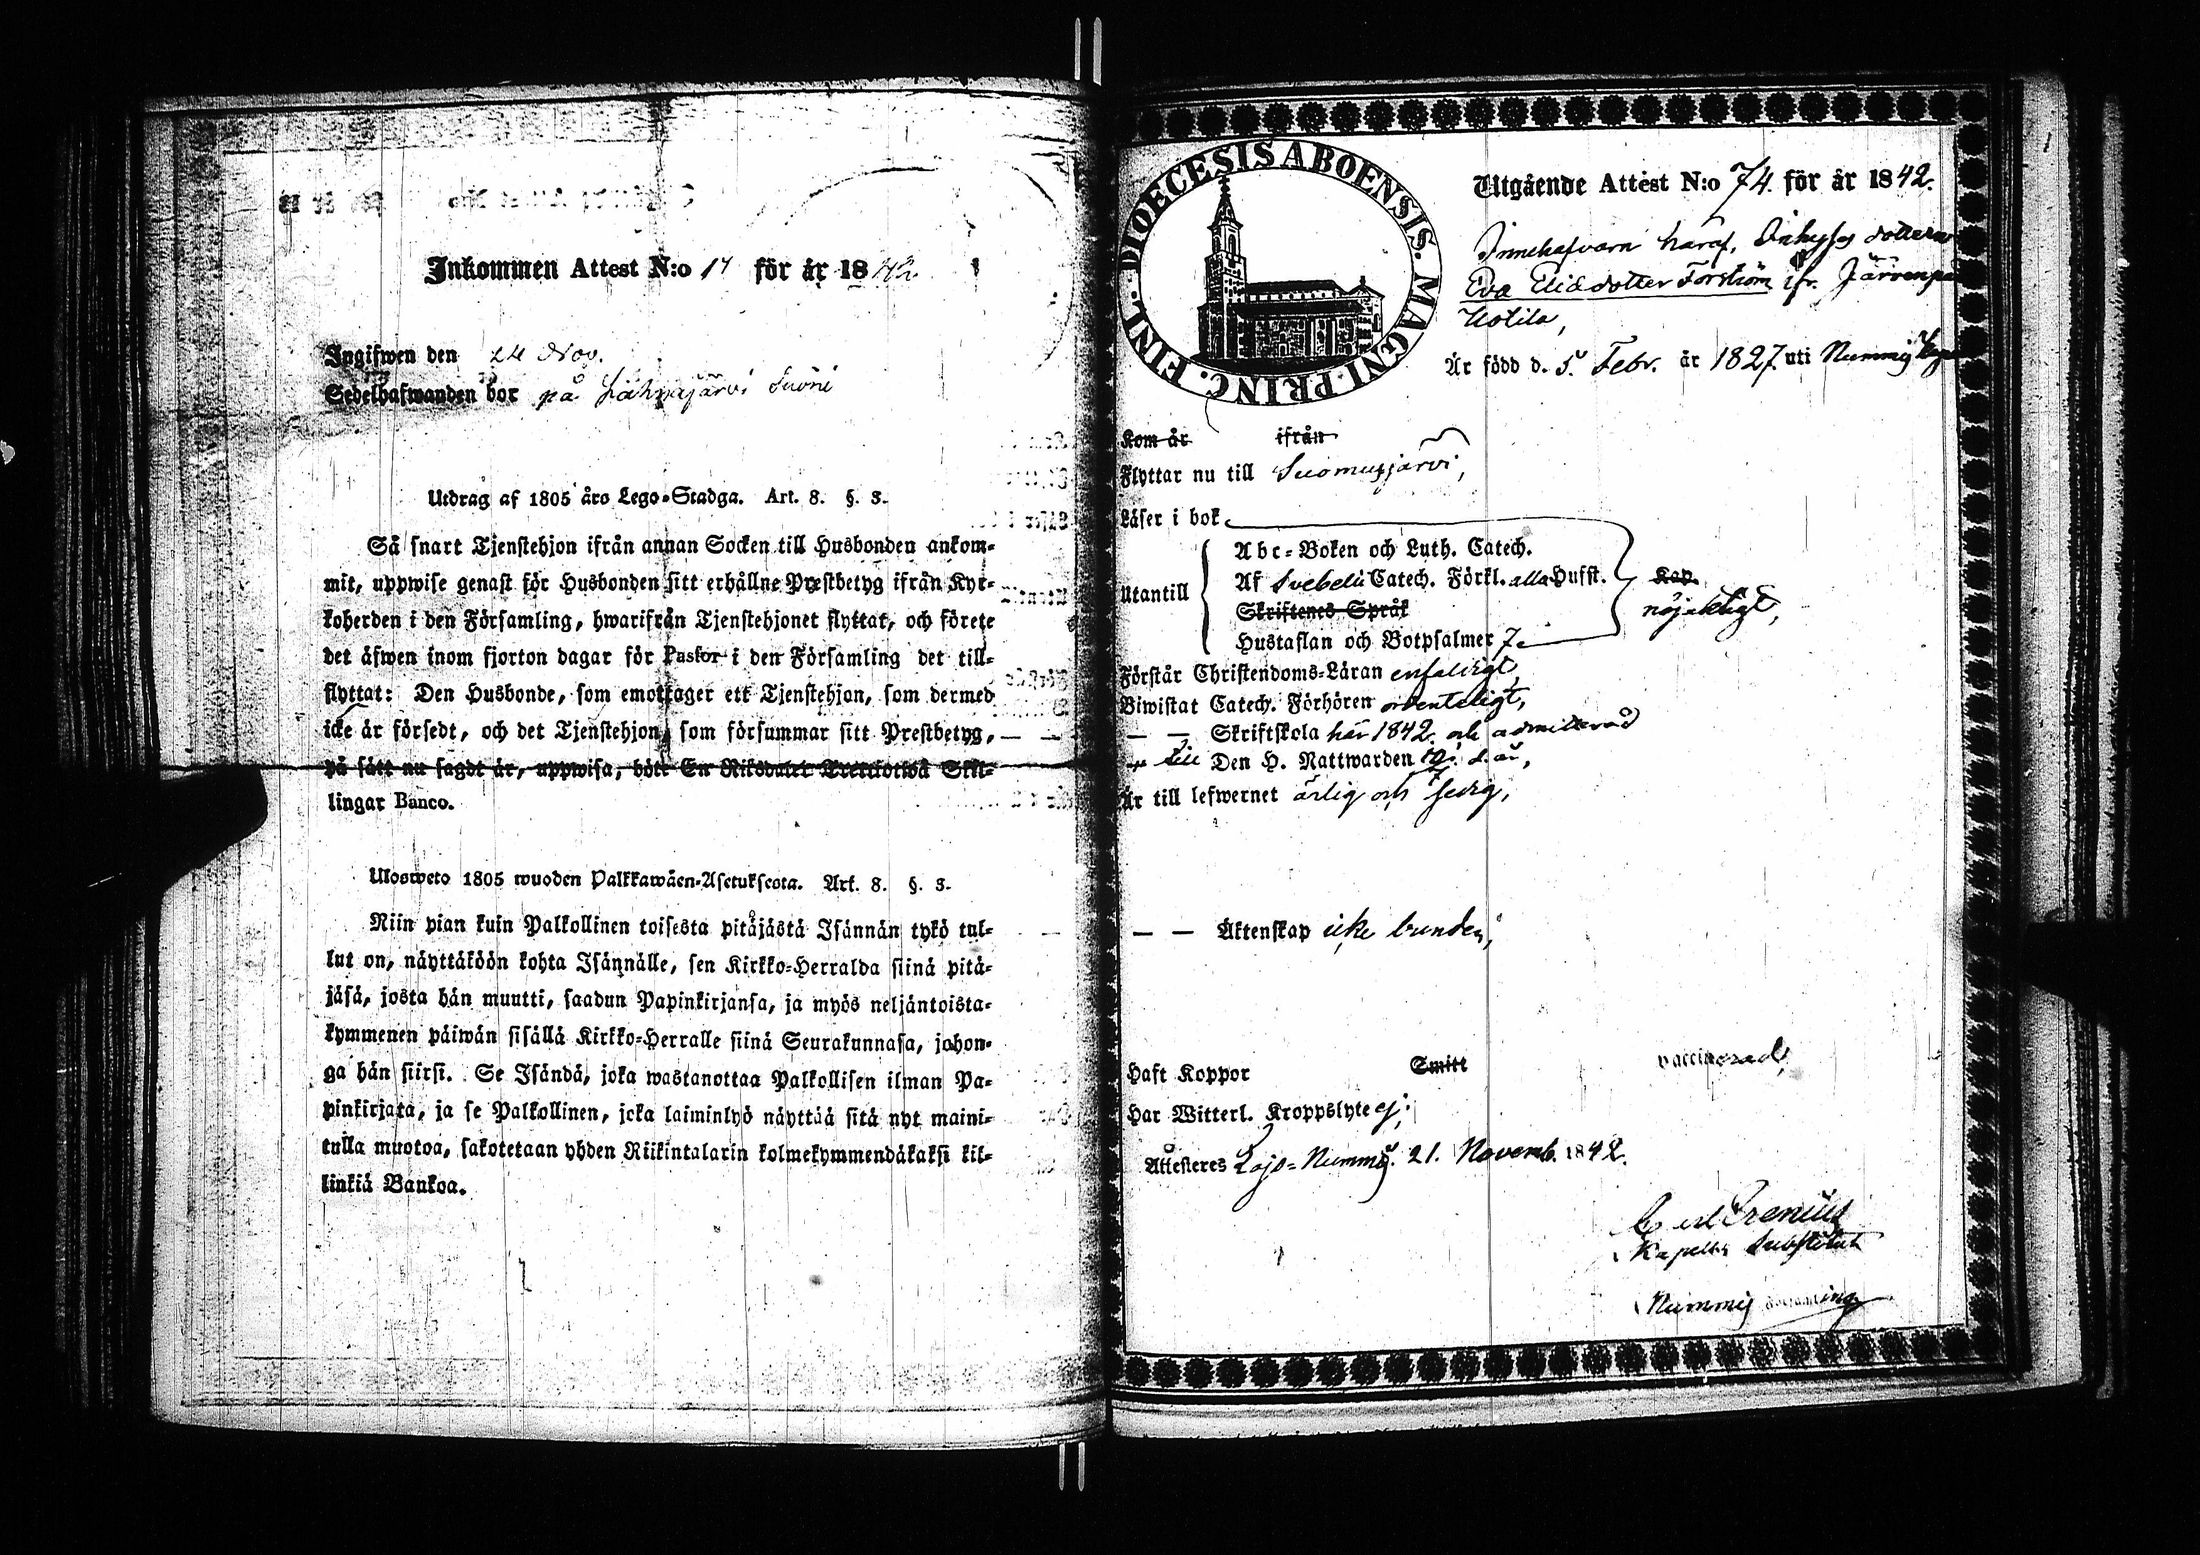 Inkommen Attest N:o 14 för år 1842.
Ingifwen den 24 Nov.
Sedelhafwanden bor på Lahnajärvi Suoni
Utdrag af 1805 års Lego-Stadga. Art. 8. §. 3.
Så snart Tjenstehjon ifrån annan Socken till Husbonden ankom-
mit, uppwise genast för Husbonden sitt erhållne Prestbetyg ifrån Kyr-
koherden i den Församling, hwarifrån Tjenstehjonet flyttat, och förete
det äfwen inom fjorton dagar för Pastor i den Församling det till-
flyttat: Den Husbonde, som emottager ett Tjenstehjon, som dermed
icke är försedt, och det Tjenstehjon, som försummar sitt Prestbetyg,
på sätt nu sagdt är, uppwisa, böte En Riksdaler Trettiotwå Skil-
lingar Banco.
Ulosweto 1805 wuoden Palkkawäen-Asetuksesta. Art. 8. §. 3.
Niin pian kuin Palkollinen toisesta pitäjästä Isännän tykö tul-
lut on, näyttäköön kohta Isännälle, sen Kirkko-Herralda siinä pitä-
jäsä, josta hän muutti, saadun Papinkirjansa, ja myös neljäntoista-
kymmenen päiwän sisällä Kirkko-Herralle siinä Seurakunnasa, johon-
ga hän siirsi. Se Isändä, joka wastanottaa Palkollisen ilman Pa-
pinkirjata, ja se Palkollinen, joka laiminlyö näyttää sitä nyt maini-
tulla muotoa, sakotetaan yhden Riikintalarin kolmekymmendäkaksi kil-
linkiä Bankoa.
DIOECESIS ABOENSIS. MAGNI PRINC. FINL.
Utgående Attest N:o 74. för år 1842.
Innehafvarn häraf, Inhyses dottern
Eva Eliædotter Forström ifr. Järvenpää
Uotila,
Är född d. 5. Febr. år 1827. uti Nummis
Kom år ifrån
Flyttar nu till Suomusjärvi,
Läser i bok
Utantill
Abc-Boken och Luth. Catech.
Af Svebelii Catech. Förkl. alla Hufst. Kap.
nöjaktigt,
Skriftenes Språk
Hustaflan och Botpsalmer 7.
Förstår Christendoms-Läran enfaldigt,
Biwistat Catech. Förhören ordenteligt,
— — Skriftskola här 1842. och admitterad
till Den H. Nattwarden d. år,
Är till lefwernet ärlig och sedig,
— — Äktenskap icke bunden,
Haft Koppor Smitt vaccinerad,
Har Witterl. Kroppslyte ej;
Attesteres Lojo-Nummis. 21. Novemb. 1842.
Carl Irenius
Kapells Substitut
Nummis Församling